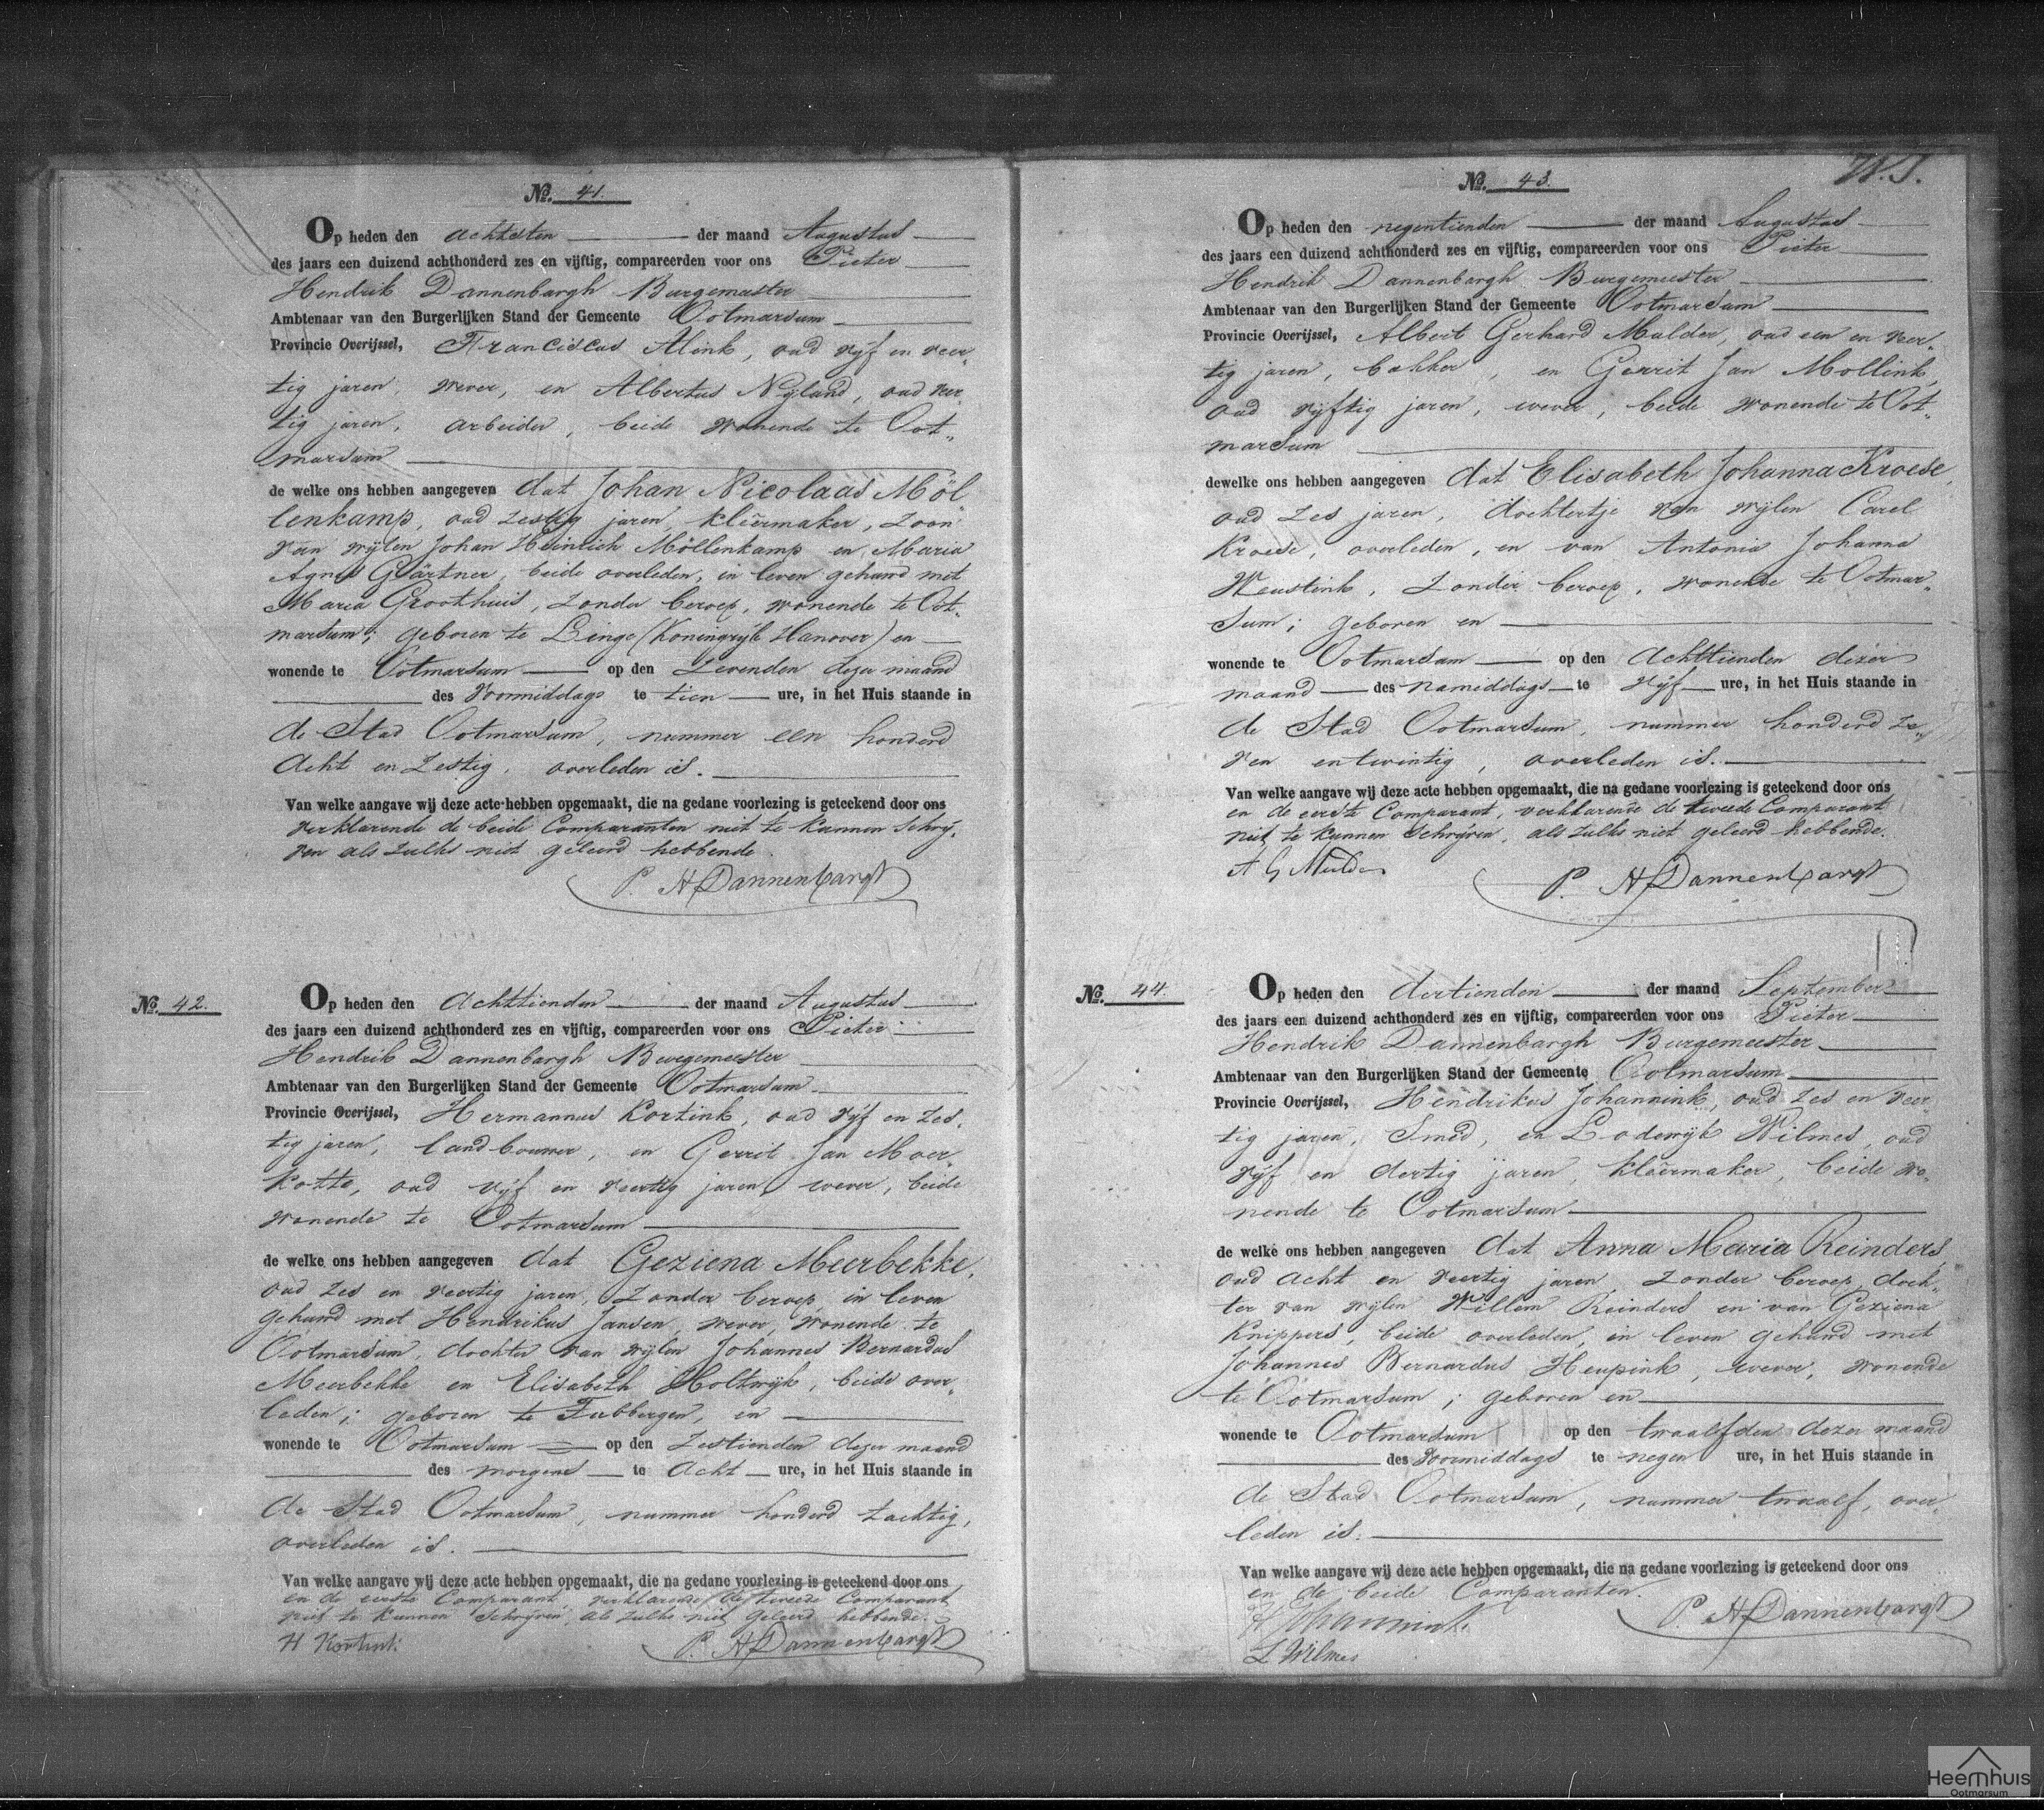 No. 41.
Op heden den achtsten der maand Augustus
des jaars een duizend achthonderd zes en vijftig, compareerden voor ons Pieter
Hendrik Dannenbargh Burgemeester
Ambtenaar van den Burgerlijken Stand der Gemeente Ootmarsum
Provincie Overijssel, Franciscus Alink, oud vijf en veer„
tig jaren, wever, en Albertus Nijland, oud veer„
tig jaren, arbeider, beide wonende te Oot„
marsum
de welke ons hebben aangegeven dat Johan Nicolaas Möl
lenkamp, oud zestig jaren, kleêrmaker, zoon
van wijlen Johan Heinrich Möllenkamp en Maria
Agnes Gärtner, beide overleden, in leven gehuwd met
Maria Groothuis, zonder beroep, wonende te Oot„
marsum; geboren te Linge (Koningrijk Hanover) en
wonende te Ootmarsum op den zevenden dezer maand
des voormiddags te tien ure, in het Huis staande in
de Stad Ootmarsum, nummer een honderd
acht en zestig, overleden is.
Van welke aangave wij deze acte hebben opgemaakt, die na gedane voorlezing is geteekend door ons
verklarende de beide Comparanten niet te kunnen schrij„
ven als zulks niet geleerd hebbende.
P. H Dannenbargh
No. 42.
Op heden den achttienden der maand Augustus
des jaars een duizend achthonderd zes en vijftig, compareerden voor ons Pieter
Hendrik Dannenbargh Burgemeester
Ambtenaar van den Burgerlijken Stand der Gemeente Ootmarsum
Provincie Overijssel, Hermannus Kortink, oud vijf en zes„
tig jaren, landbouwer, en Gerrit Jan Moer„
kotte, oud vijf en veertig jaren, wever, beide
wonende te Ootmarsum
de welke ons hebben aangegeven dat Geziena Meerbekke,
oud zes en veertig jaren, zonder beroep, in leven
gehuwd met Hendrikus Jansen, wever, wonende te
Ootmarsum, dochter van wijlen Johannes Bernardus
Meerbekke en Elisabeth Holtwijk, beide over„
leden; geboren te Tubbergen, en
wonende te Ootmarsum op den zestienden dezer maand
des morgens te acht ure, in het Huis staande in
de Stad Ootmarsum, nummer honderd tachtig,
overleden is.
Van welke aangave wij deze acte hebben opgemaakt, die na gedane voorlezing is geteekend door ons
en de eerste Comparant, verklarende de tweede Comparant
niet te kunnen schrijven, als zulks niet geleerd hebbende.
H Kortink
P. H Dannenbargh
W.J.
No. 43.
Op heden den negentienden der maand Augustus
des jaars een duizend achthonderd zes en vijftig, compareerden voor ons Pieter
Hendrik Dannenbargh Burgemeester
Ambtenaar van den Burgerlijken Stand der Gemeente Ootmarsum
Provincie Overijssel, Albert Gerhard Mulder, oud een en veer„
tig jaren, bakker, en Gerrit Jan Mollink,
oud vijftig jaren, wever, beide wonende te Oot„
marsum
dewelke ons hebben aangegeven dat Elisabeth Johanna Kroese,
oud zes jaren, dochtertje van wijlen Carel
Kroese, overleden, en van Antonia Johanna
Weustink, zonder beroep, wonende te Ootmar„
sum; geboren en
wonende te Ootmarsum op den achttienden dezer
maand des namiddags te vijf ure, in het Huis staande in
de Stad Ootmarsum, nummer honderd ze„
ven en twintig, overleden is.
Van welke aangave wij deze acte hebben opgemaakt, die na gedane voorlezing is geteekend door ons
en de eerste Comparant, verklarende de tweede Comparant
niet te kunnen schrijven, als zulks niet geleerd hebbende.
A G Mulder
P. H Dannenbargh
No. 44.
Op heden den dertienden der maand September
des jaars een duizend achthonderd zes en vijftig, compareerden voor ons Pieter
Hendrik Dannenbargh Burgemeester
Ambtenaar van den Burgerlijken Stand der Gemeente Ootmarsum
Provincie Overijssel, Hendrikus Johannink, oud zes en veer„
tig jaren, Smid, en Lodewijk Wilmes, oud
vijf en dertig jaren, kleêrmaker, beide wo„
nende te Ootmarsum
de welke ons hebben aangegeven dat Anna Maria Reinders,
oud acht en veertig jaren, zonder beroep, doch„
ter van wijlen Willem Reinders en van Geziena
Knippers, beide overleden, in leven gehuwd met
Johannes Bernardus Heupink, wever, wonende
te Ootmarsum; geboren en
wonende te Ootmarsum op den twaalfden dezer maand
des voormiddags te negen ure, in het Huis staande in
de Stad Ootmarsum, nummer twaalf, over„
leden is.
Van welke aangave wij deze acte hebben opgemaakt, die na gedane voorlezing is geteekend door ons
en de beide Comparanten.
H Johannink
P. H Dannenbargh
L Wilmes
Heemhuis
Ootmarsum